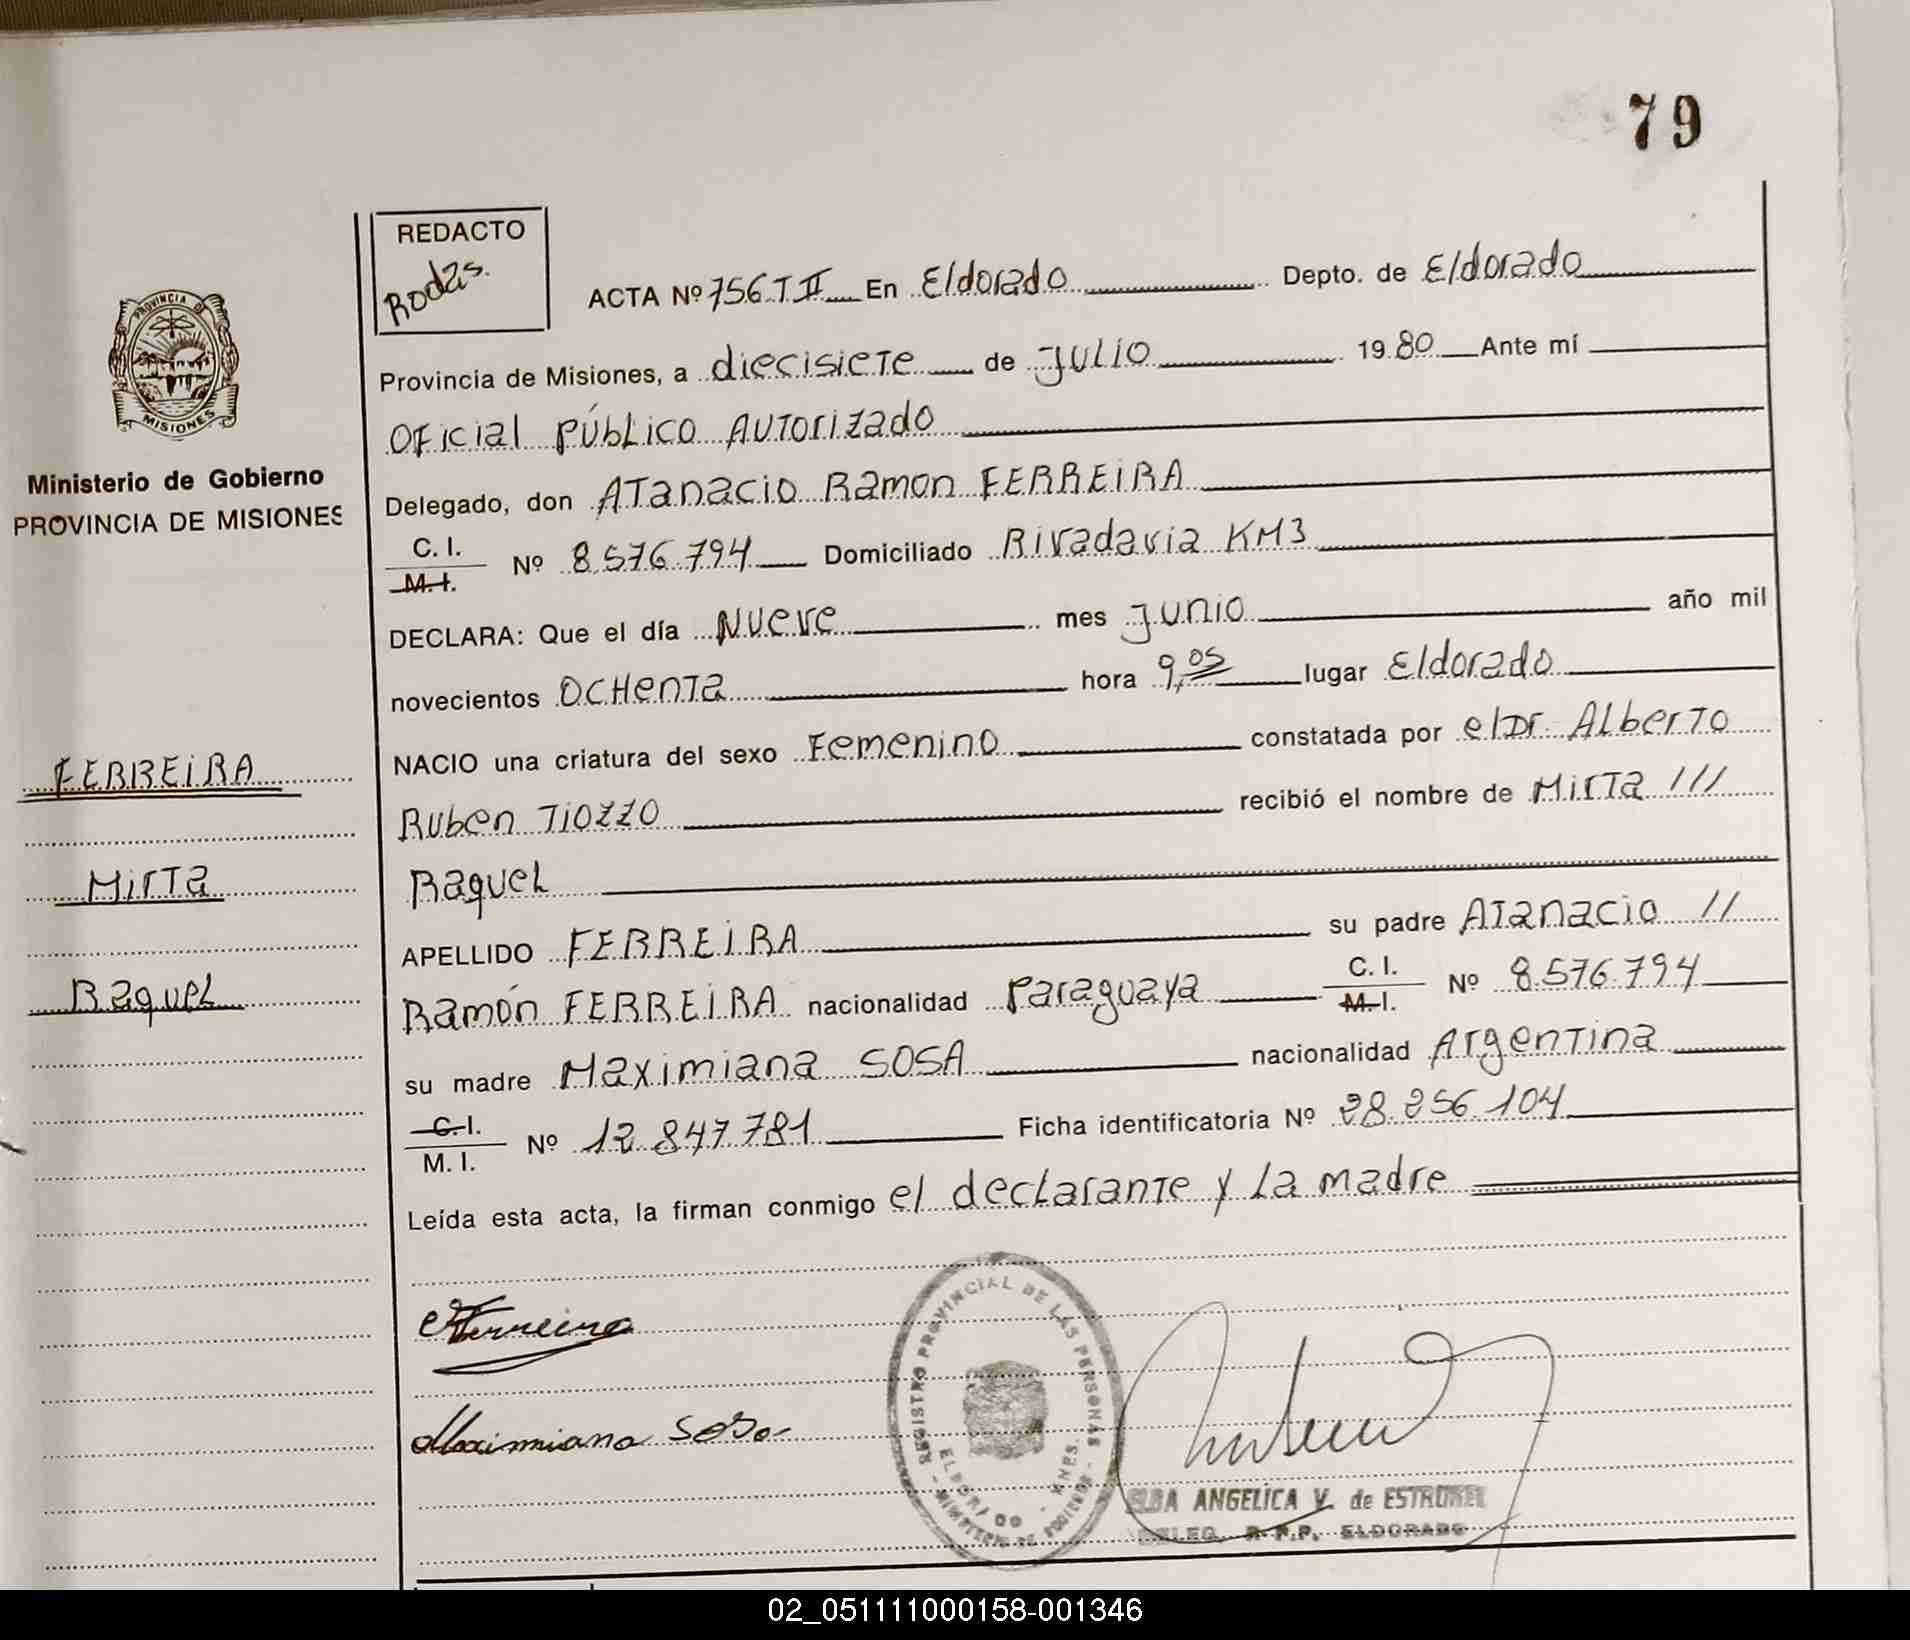 79
REDACTO
Rodas.
ACTA Nº 756 T II En Eldorado Depto. de Eldorado
PROVINCIA DE
MISIONES
Provincia de Misiones, a diecisiete de Julio 1980 Ante mí
Oficial Público Autorizado
Ministerio de Gobierno
PROVINCIA DE MISIONES
Delegado, don Atanacio Ramon FERREIRA
C. I.
M. I.
Nº 8.576.794 Domiciliado Rivadavia KM3
DECLARA: Que el día Nueve mes Junio año mil
novecientos Ochenta hora 9,05 lugar Eldorado
NACIO una criatura del sexo Femenino constatada por el Dr. Alberto
FERREIRA
Ruben Tiozzo recibió el nombre de Mirta ///
Mirta
Raquel
APELLIDO FERREIRA su padre Atanacio //
Raquel
Ramón FERREIRA nacionalidad Paraguaya C. I.
M. I.
Nº 8.576.794
su madre Maximiana SOSA nacionalidad Argentina
C. I.
M. I.
Nº 12.847.781 Ficha identificatoria Nº 28.256.104
Leída esta acta, la firman conmigo el declarante y la madre
Ferreira
Maximiana Sosa
REGISTRO PROVINCIAL DE LAS PERSONAS - MINISTERIO DE GOBIERNO -
ELDORADO - MNES.
ELBA ANGELICA V. de
DELEG. R.P.P. ELDORADO
02_051111000158-001346